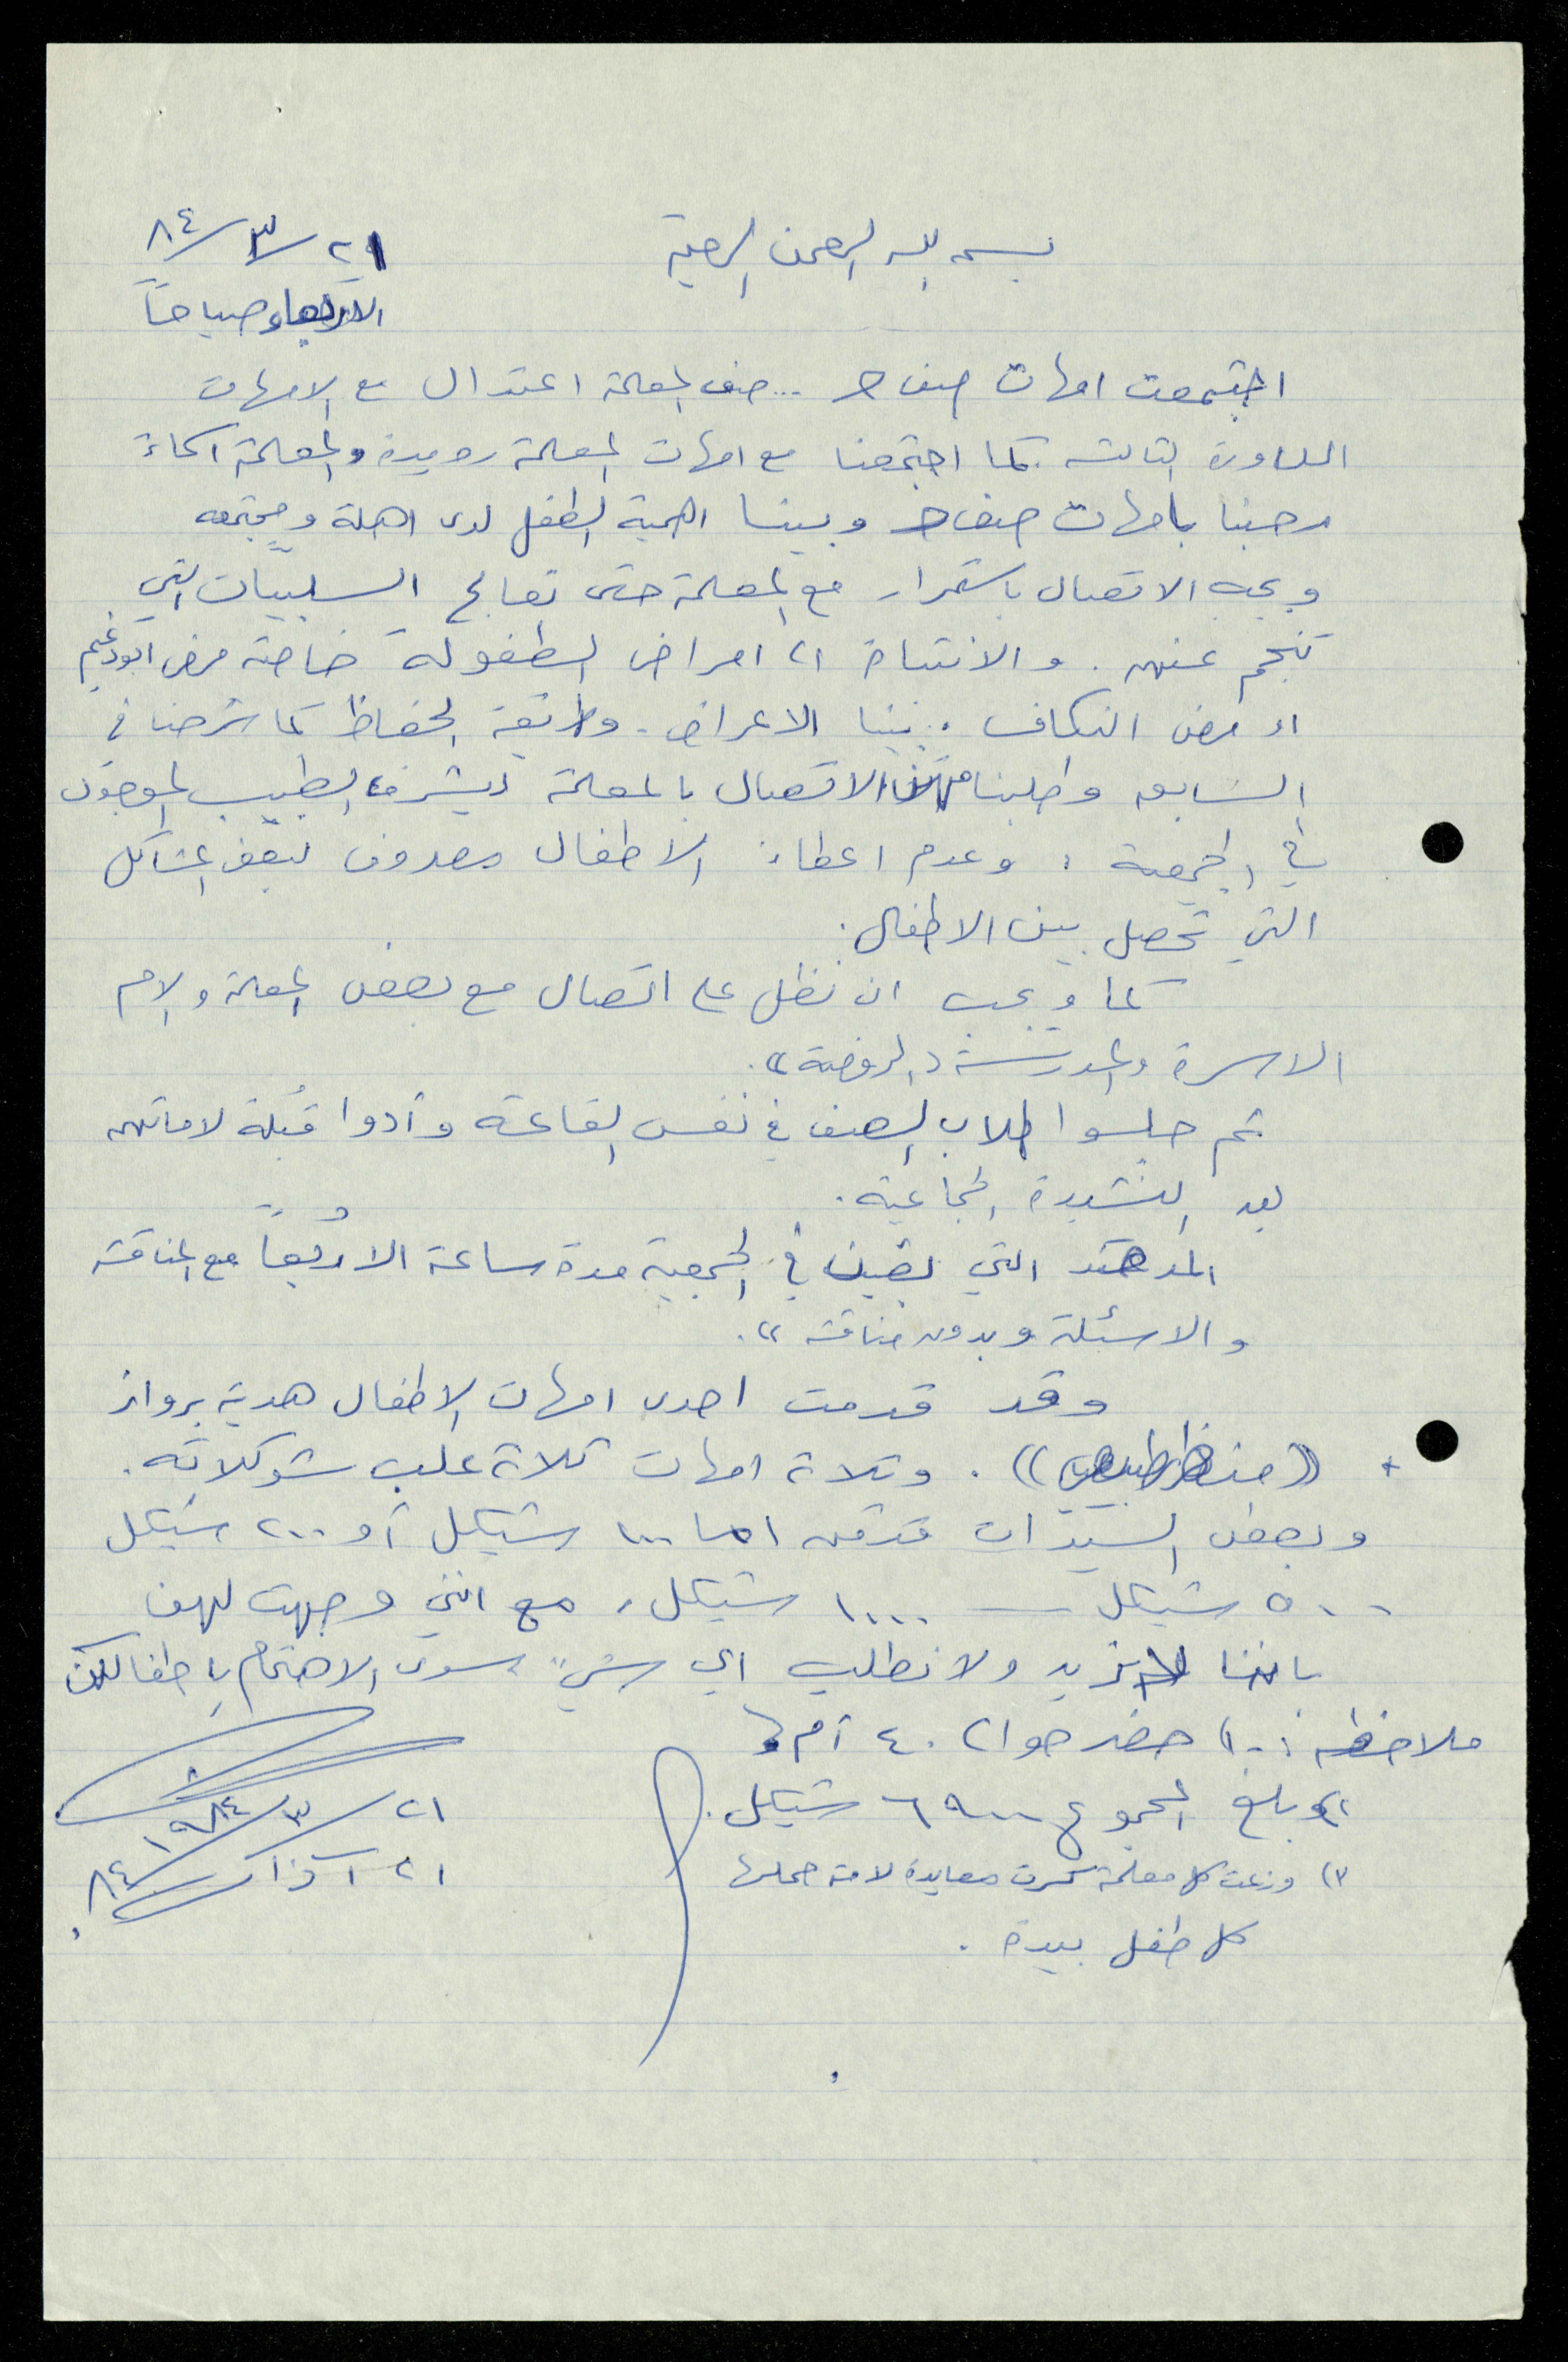 بسم الله الرحمن الرحيم
٢١/٣/٨٤
الاربعاء صباحاً
اجتمعت امهات صف ح ... صف المعلمة اعتدال مع الامهات
للدورة الثالثة كما اجتمعنا مع امهات المعلمة رويدة والمعلمة اسماء
رحبنا بامهات صف ح وبينا اهمية الطفل لدى اهله ومجتمعه
ويجب الاتصال باستمرار مع المعلمة حتى تعالج السلبيات التي
تنجم عنهم . والانتباه الى امراض الطفولة خاصة مرض ابو دغيم
او مرض النكاف . بينا الاعراض . وطريقة الحفاظ كما شرحنا في
السابق وطلبنا منهن الاتصال بالمعلمة الطبيب الموجود
في الجمعية ، وعدم اعطاء الاطفال مصروف لبعض المشاكل
التي تحصل بين الاطفال .
كما ويجب ان نظل على اتصال مع بعض المعلمة والام
الاسرة والمدرسة « الروضة » .
ثم جلسوا طلاب الصف في نفس القاعة وأدوا قبلة لاماتهم
بعد النشيدة الجماعية .
المدة التي بقين في الجمعية مدة ساعة الا ربعاً مع المناقشة
والاسئلة وبدون مناقشة » .
وقد قدمت احدى امهات الاطفال هدية برواز
+ (( منظر طبيعي )) . وثلاثة امهات ثلاثة علب شوكلاته .
وبعض السيدات قدمن اما ١٠٠ شيكل أو ٢٠٠ شيكل
٥٠٠ شيكل ــ ١٠٠٠ شيكل ، مع انني وجهت لهن
باننا لا نريد ولا نطلب اي شيءً سوى الاهتمام باطفالكن
ملاحظة : ١) حضر حوالي ٤٠ أم
٢) وبلغ المجموع ٦٩٠٠ شيكل .
٢١/٣/١٩٨٤
٣) وزعت كل معلمة كرت معايدة لامه حملها
٢١ آذار ٨٤ .
كل طفل بيده .